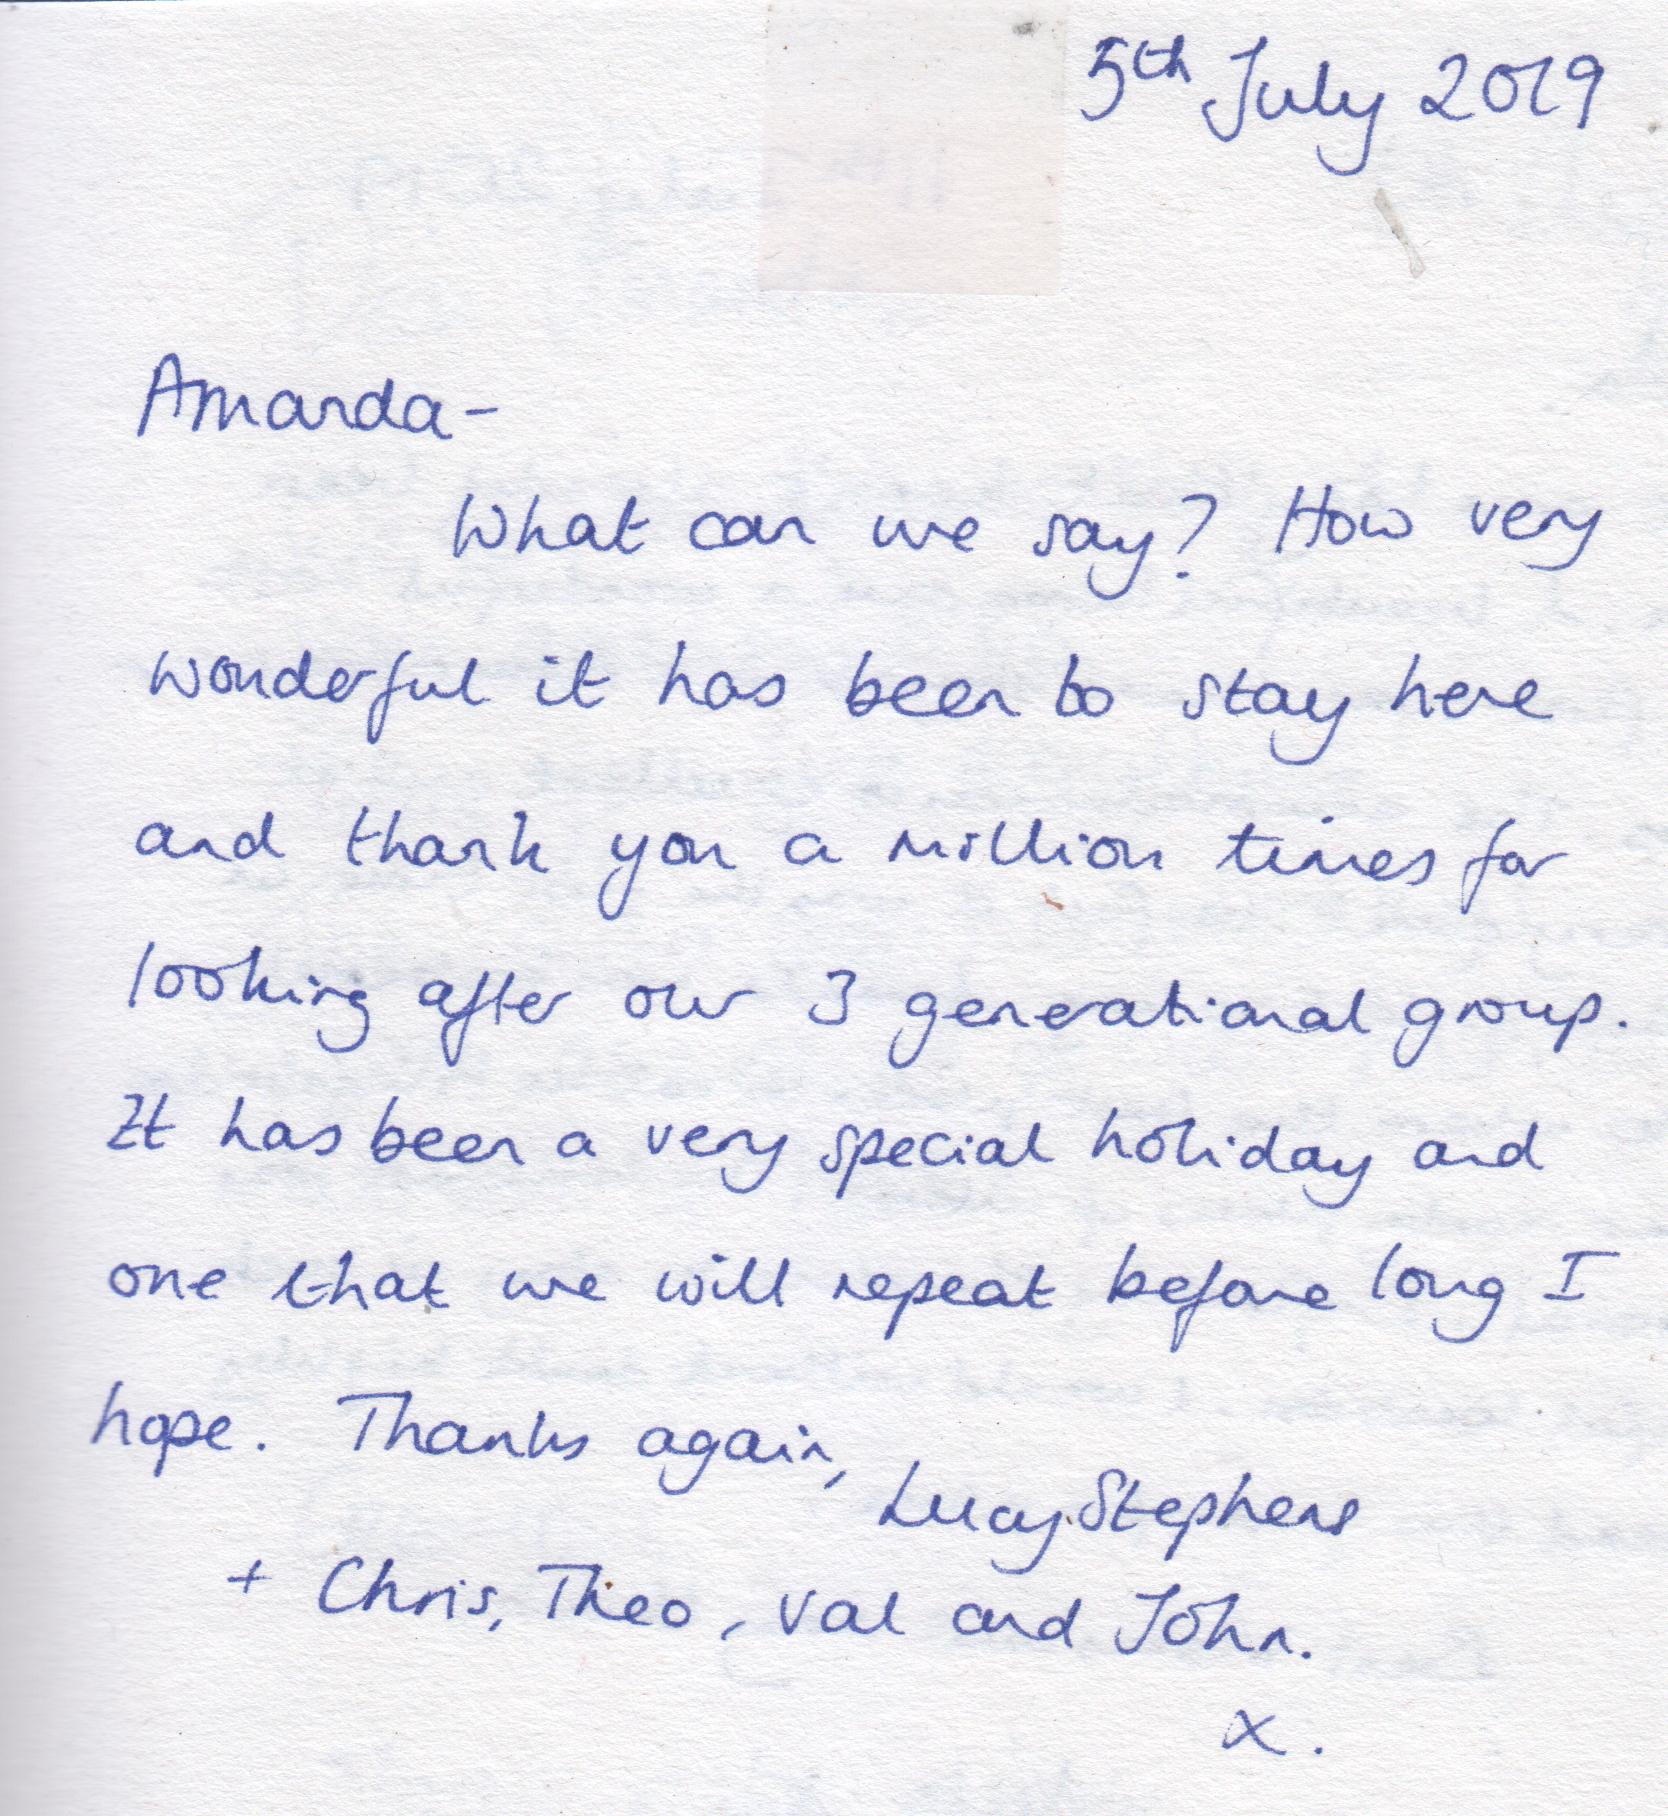 5th July 2019
Amanda-
What can we say? How very
wonderful it has been to stay here
and thank you a million times for
looking after our 3 generational group.
It has been a very special holiday and
one that we will repeat before long I
hope. Thanks again,
Lucy Stephens
+ Chris, Theo, Val and John.
x.